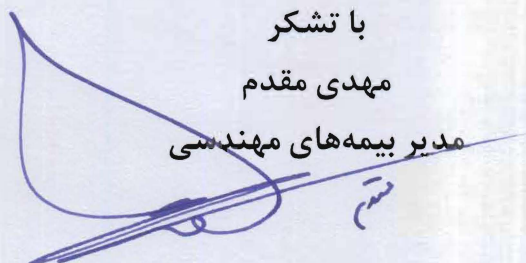 با تشکر
مهدی مقدم
مدیر بیمه‌های مهندسی